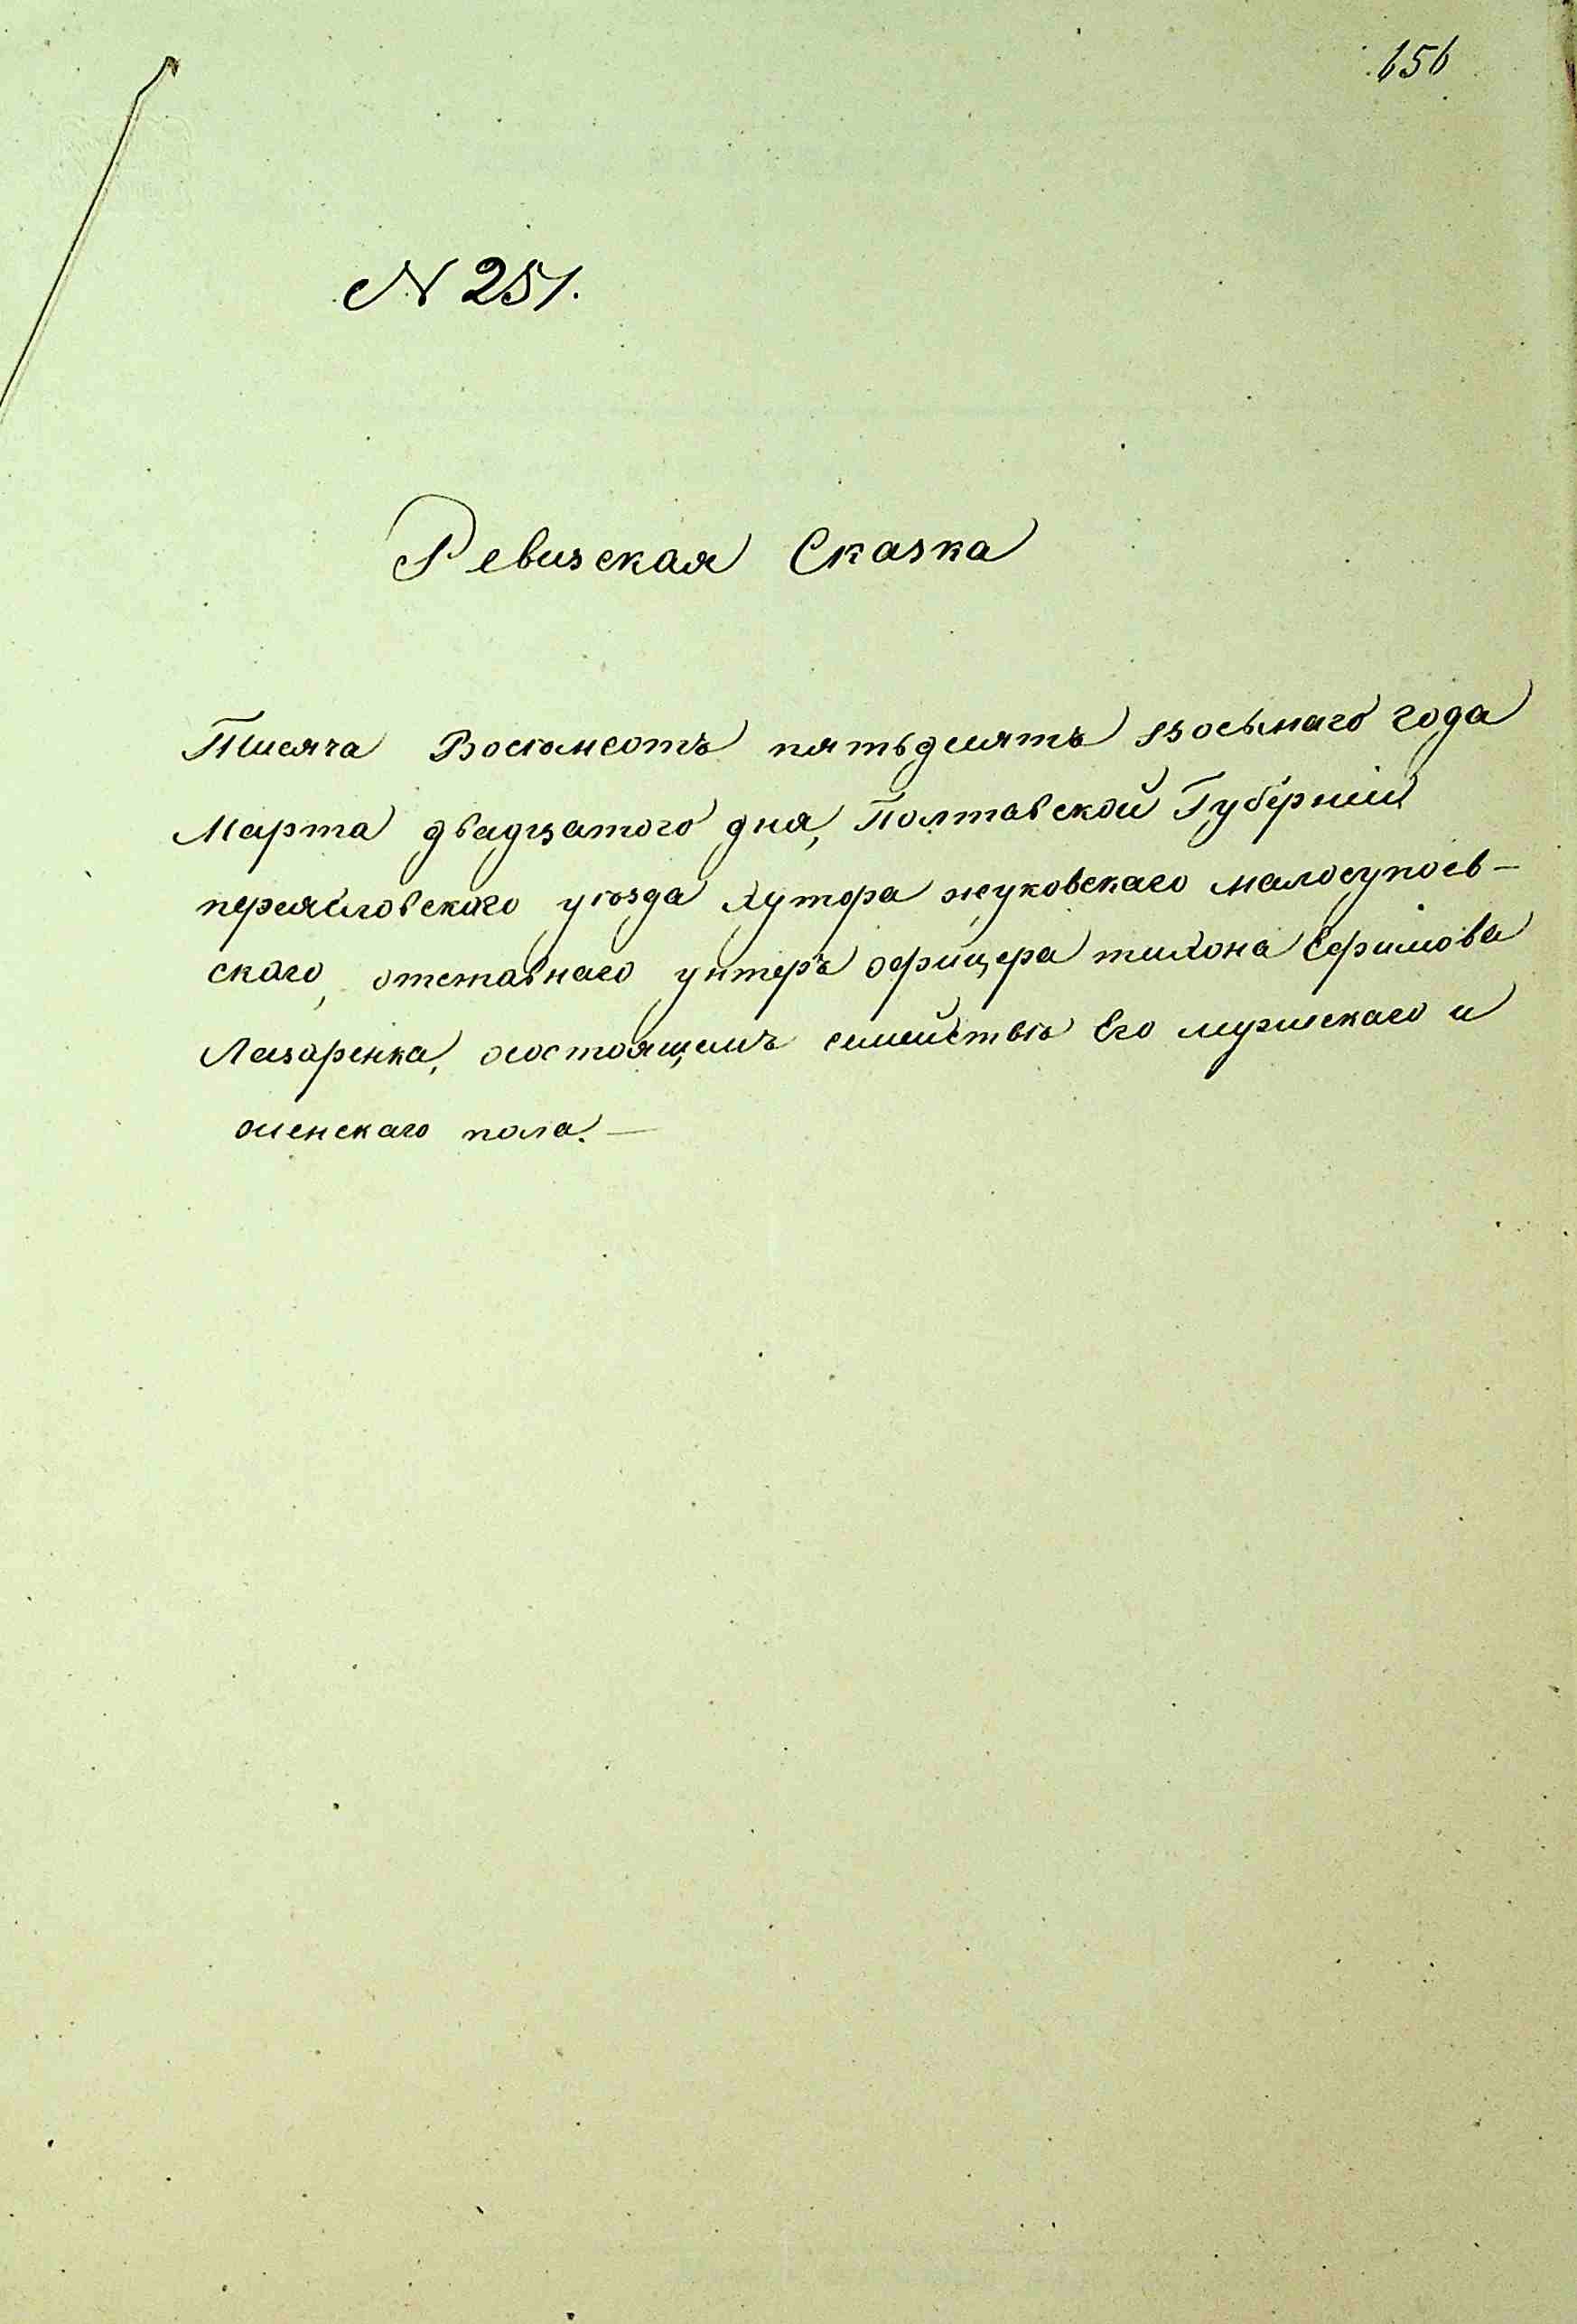 656
N 251.
Ревизская Сказка
Тисяча Восемсотъ пятьдесятъ восьмаго года
Марта двадцатого дня, Полтавской Губерніи
переясловского уѣзда Хутора жуковскаго малосупоев-
ского, отставнаго унтеръ офицера тихона Ефимова
Лазаренка, осостоящемъ семействѣ Его мужскаго и
женскаго пола. —